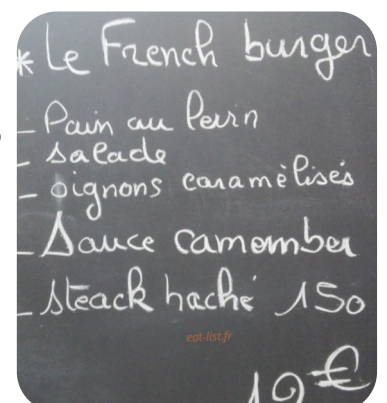 * Le French burger
- Pain au levin
- salade
- oignons caramèlisés
- Sauce camember
- steack haché 150
eat-list.fr
€